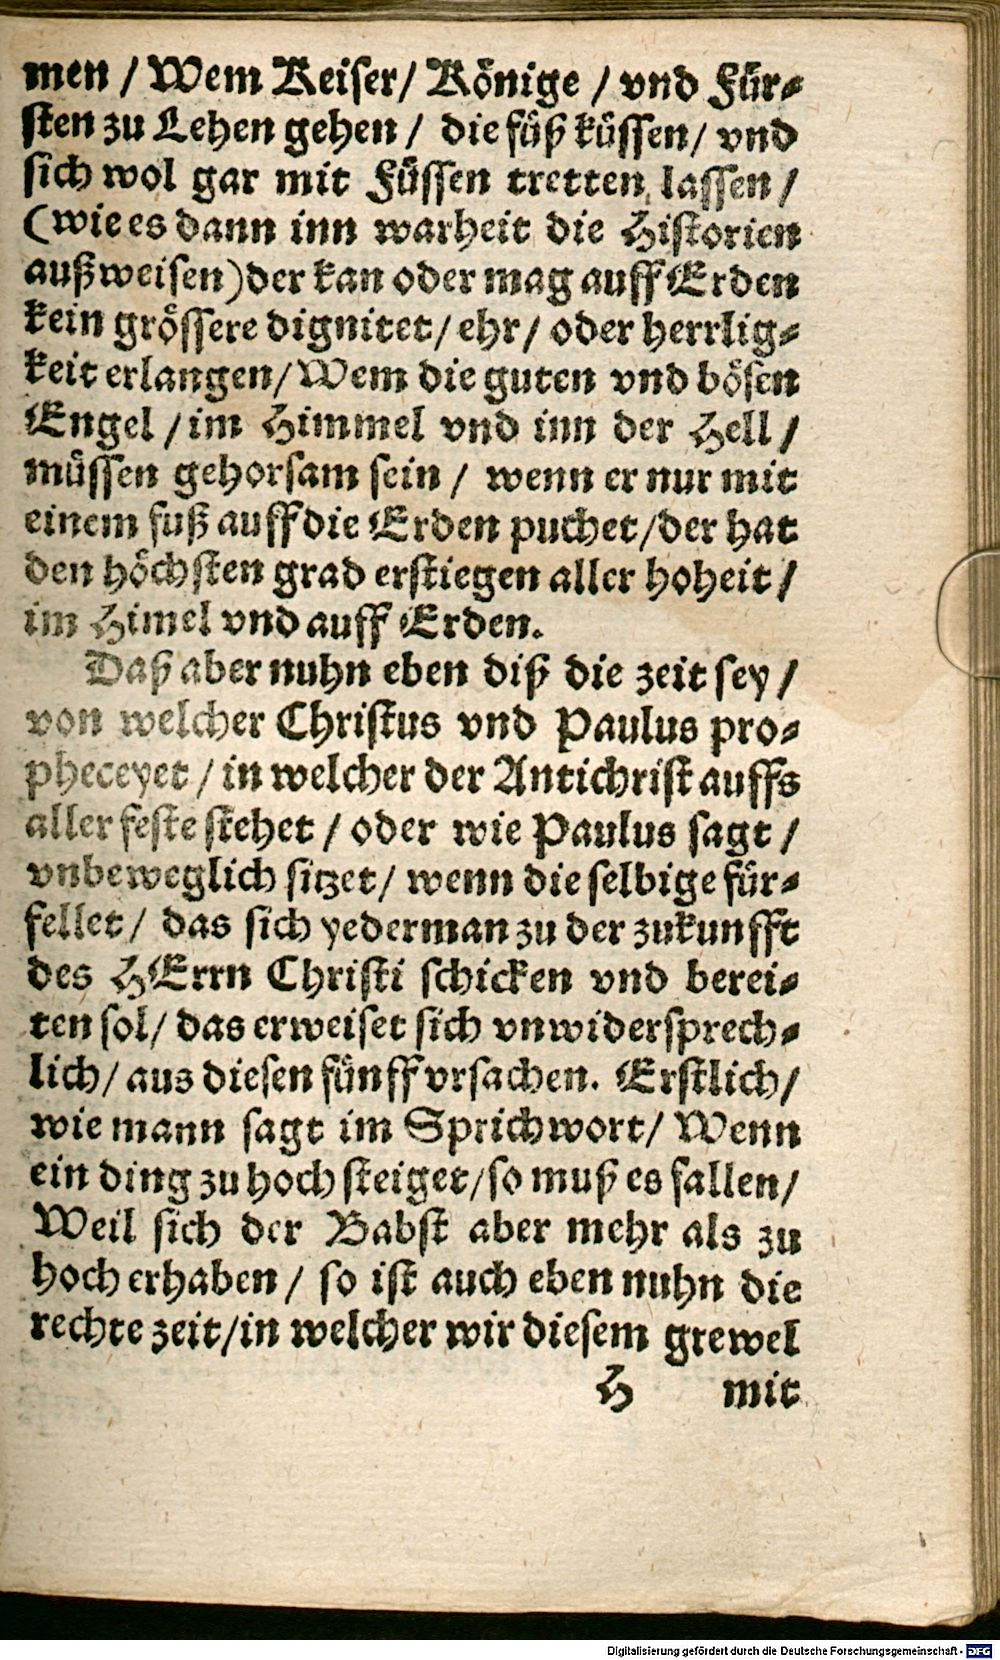 men / Wem Keiser / Könige / vnd Für-
sten zu Lehen gehen / die füß küssen / vnd
sich wol gar mit Füssen tretten lassen /
(wie es dann inn warheit die Historien
außweisen) der kan oder mag auff Erden
kein grössere dignitet / ehr / oder herrlig-
keit erlangen / Wem die guten vnd bösen
Engel / im Himmel vnd inn der Hell /
müssen gehorsam sein / wenn er nur mit
einem fuß auff die Erden puchet / der hat
den höchsten grad erstiegen aller hoheit /
im Himel vnd auff Erden.
Daß aber nuhn eben diß die zeit sey /
von welcher Christus vnd Paulus pro-
pheceyet / in welcher der Antichrist auffs
aller feste stehet / oder wie Paulus sagt /
vnbeweglich sitzet / wenn die selbige für-
fellet / das sich yederman zu der zukunfft
des HErrn Christi schicken vnd berei-
ten sol / das erweiset sich vnwidersprech-
lich / aus diesen fünff vrsachen. Erstlich /
wie mann sagt im Sprichwort / Wenn
ein ding zu hoch steiget / so muß es fallen /
Weil sich der Babst aber mehr als zu
hoch erhaben / so ist auch eben nuhn die
rechte zeit / in welcher wir diesem grewel
H mit
Digitalisierung gefördert durch die Deutsche Forschungsgemeinschaft - DFG